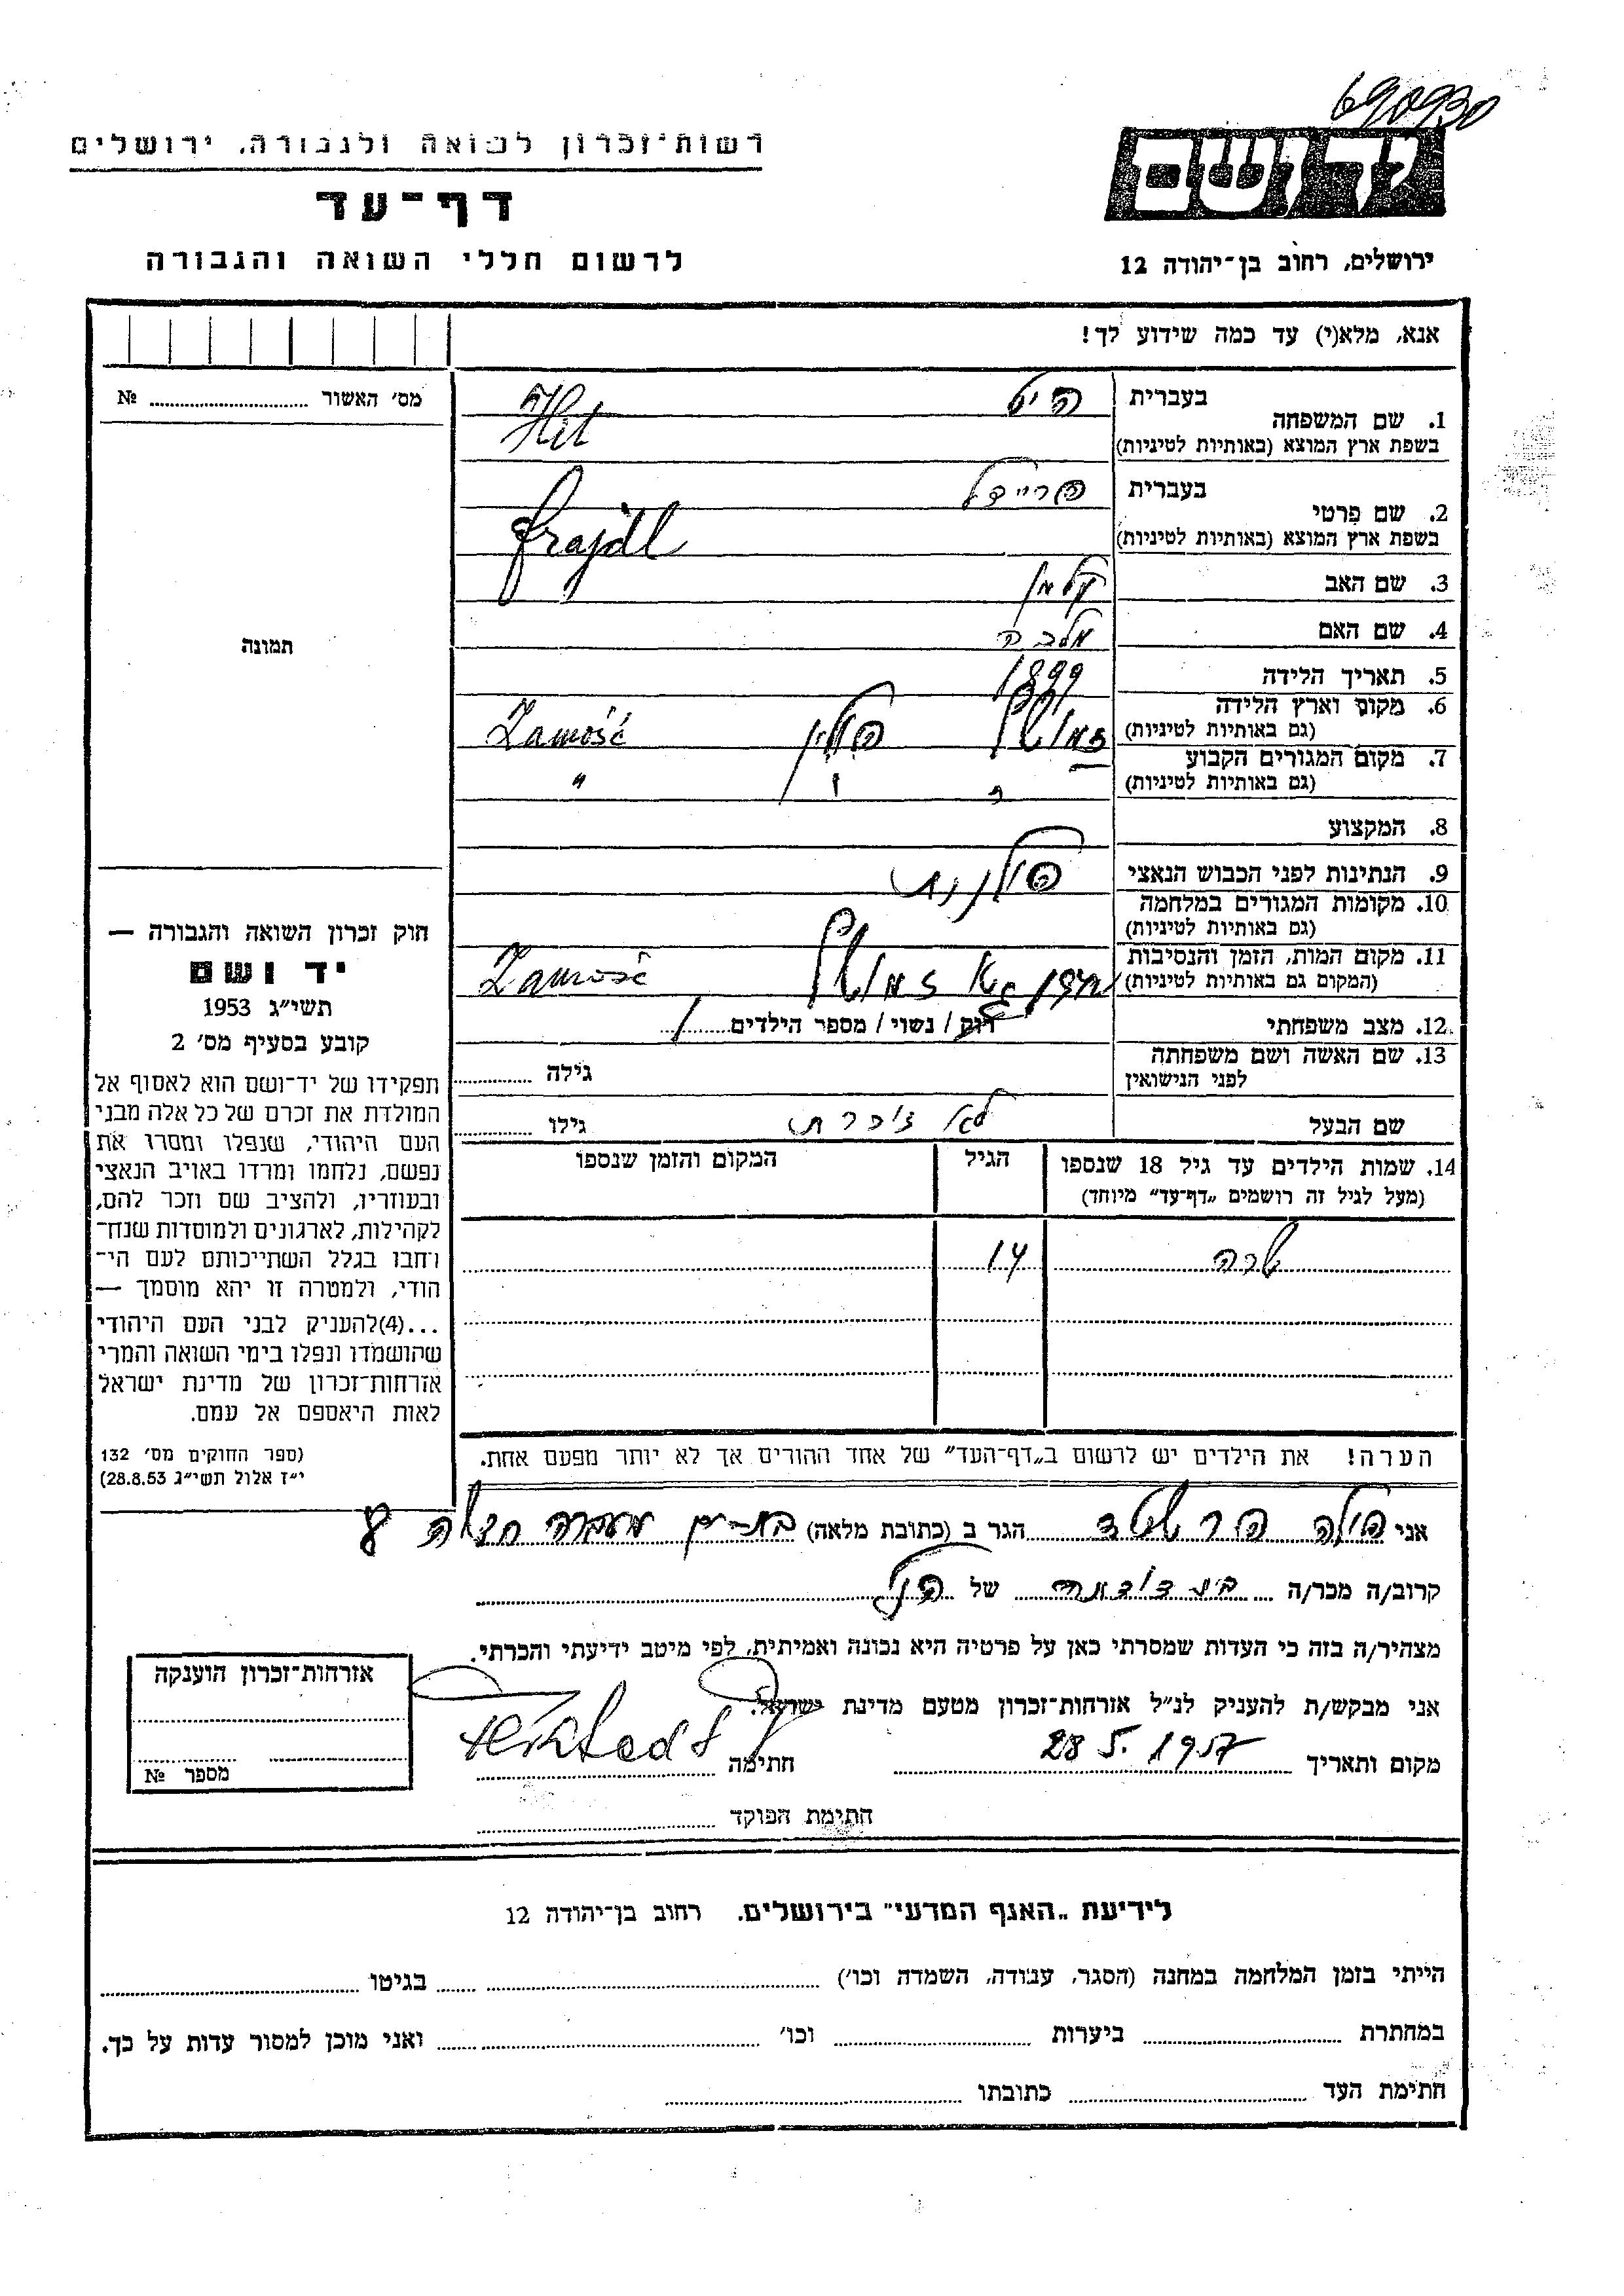 690930
רשות־זכרון לשואה ולגבורה, ירושלים
יד ושם
דף־עד
לרשום חללי השואה והגבורה
ירושלים, רחוב בן־יהודה 12
אנא, מלא(י) עד כמה שידוע לך!
מס׳ האשור ........ №
תמונה
חוק זכרון השואה והגבורה —
יד ושם
תשי״ג 1953
קובע בסעיף מס׳ 2
תפקידו של יד־ושם הוא לאסוף אל
המולדת את זכרם של כל אלה מבני
העם היהודי, שנפלו ומסרו את
נפשם, נלחמו ומרדו באויב הנאצי
ובעוזריו, ולהציב שם וזכר להם,
לקהילות, לארגונים ולמוסדות שנח־
רחבו בגלל השתייכותם לעם הי־
הודי, ולמטרה זו יהא מוסמך —
...(4)להעניק לבני העם היהודי
שהושמדו ונפלו בימי השואה והמרי
אזרחות־זכרון של מדינת ישראל
לאות היאספם אל עמם.
(ספר החוקים מס׳ 132
י״ז אלול תשי״ג 28.8.53)
בעברית היט
1. שם המשפחה
בשפת ארץ המוצא (באותיות לטיניות) Hit
בעברית פריידל
2. שם פרטי
בשפת ארץ המוצא (באותיות לטיניות) Frajdl
3. שם האב קלמן
4. שם האם מלכה
5. תאריך הלידה 1899
6. מקום וארץ הלידה
(גם באותיות לטיניות) זמושץ פולין Zamość
7. מקום המגורים הקבוע
(גם באותיות לטיניות) " " "
8. המקצוע
9. הנתינות לפני הכבוש הנאצי פולנית
10. מקומות המגורים במלחמה
(גם באותיות לטיניות)
11. מקום המות, הזמן והנסיבות
(המקום גם באותיות לטיניות) זמושץ Zamość
12. מצב משפחתי רוק / נשוי / מספר הילדים 1
13. שם האשה ושם משפחתה
לפני הנישואין גילה
שם הבעל לא זוכרת גילו
14. שמות הילדים עד גיל 18 שנספו הגיל המקום והזמן שנספו
(מעל לגיל זה רושמים „דף־עד״ מיוחד)
שרה 14
הערה! את הילדים יש לרשום ב„דף־העד״ של אחד ההורים אך לא יותר מפעם אחת.
אני פולה פרשטד הגר ב (כתובת מלאה) בת־ים מעברה 8
קרוב/ה מכר/ה בת דודתה של הנ"ל
מצהיר/ה בזה כי העדות שמסרתי כאן על פרטיה היא נכונה ואמיתית, לפי מיטב ידיעתי והכרתי.
אני מבקש/ת להעניק לנ״ל אזרחות־זכרון מטעם מדינת ישראל.
מקום ותאריך 28 5. 1957 חתימה
חתימת הפוקד
אזרחות־זכרון הוענקה
מספר №
לידיעת „האגף המדעי״ בירושלים. רחוב בן־יהודה 12
הייתי בזמן המלחמה במחנה (הסגר, עבודה, השמדה וכו׳) בגיטו
במחתרת ביערות וכו׳ ואני מוכן למסור עדות על כך.
חתימת העד כתובתו